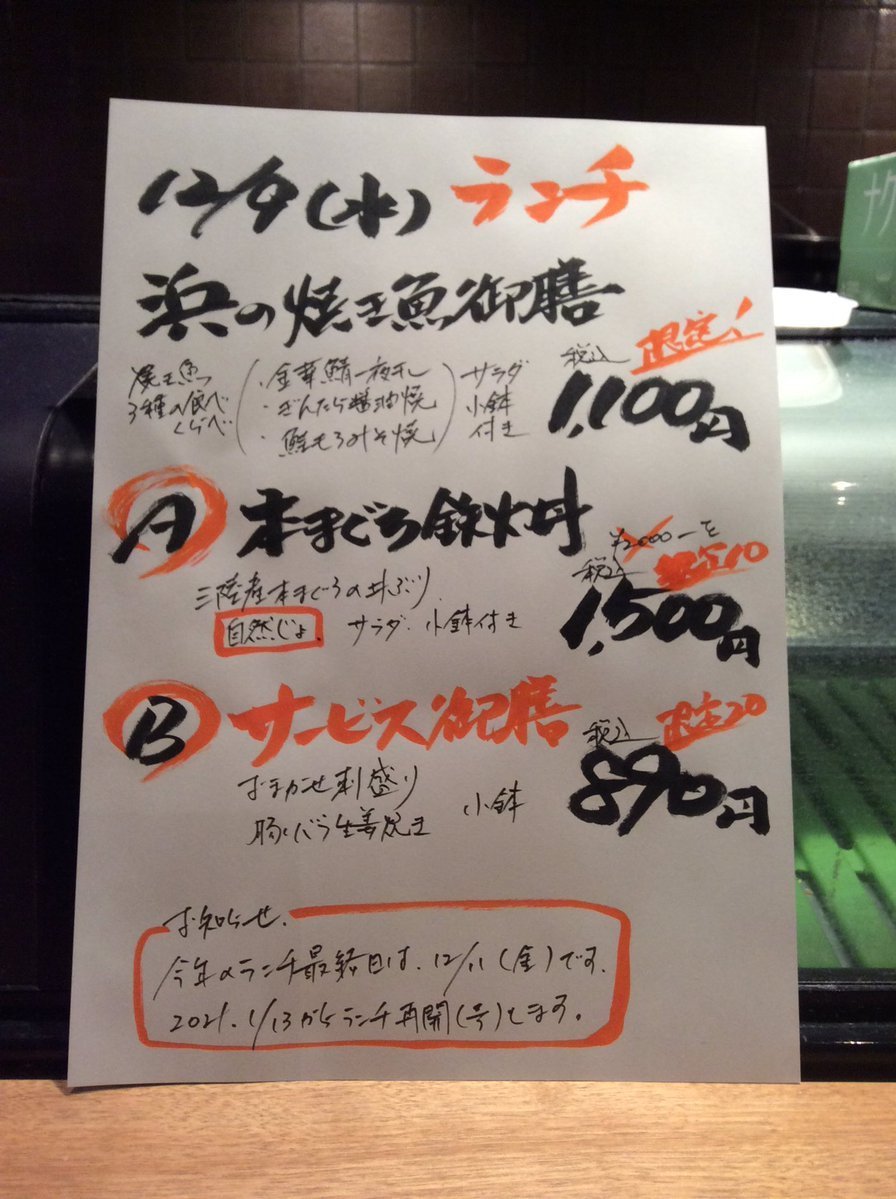 12/9(水) ランチ
浜の焼き魚御膳
焼き魚
3種の食べ
くらべ
・金華鯖一夜干し
・ぎんだら醤油焼
・鮭もろみそ焼
サラダ
小鉢
付き
税込 限定!
1,100円
A 本まぐろ鉄火丼
三陸産本まぐろの丼ぶり
自然じょ. サラダ. 小鉢付き
¥2000-を
税込 限定10
1,500円
B サービス御膳
おまかせ刺盛り
豚バラ生姜焼き
小鉢
税込 限定20
890円
お知らせ.
今年のランチ最終日は、12/11(金)です.
2021.1/13からランチ再開(号)します。